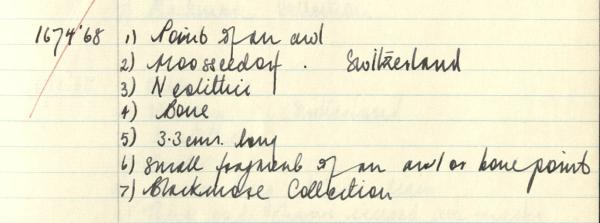 1674'68 1) Point of an awl
2) Moosseedorf . Switzerland
3) Neolithic
4) Bone
5) 3.3cms. long
6) Small fragment of an awl or bone point
7) Blackmore Collection